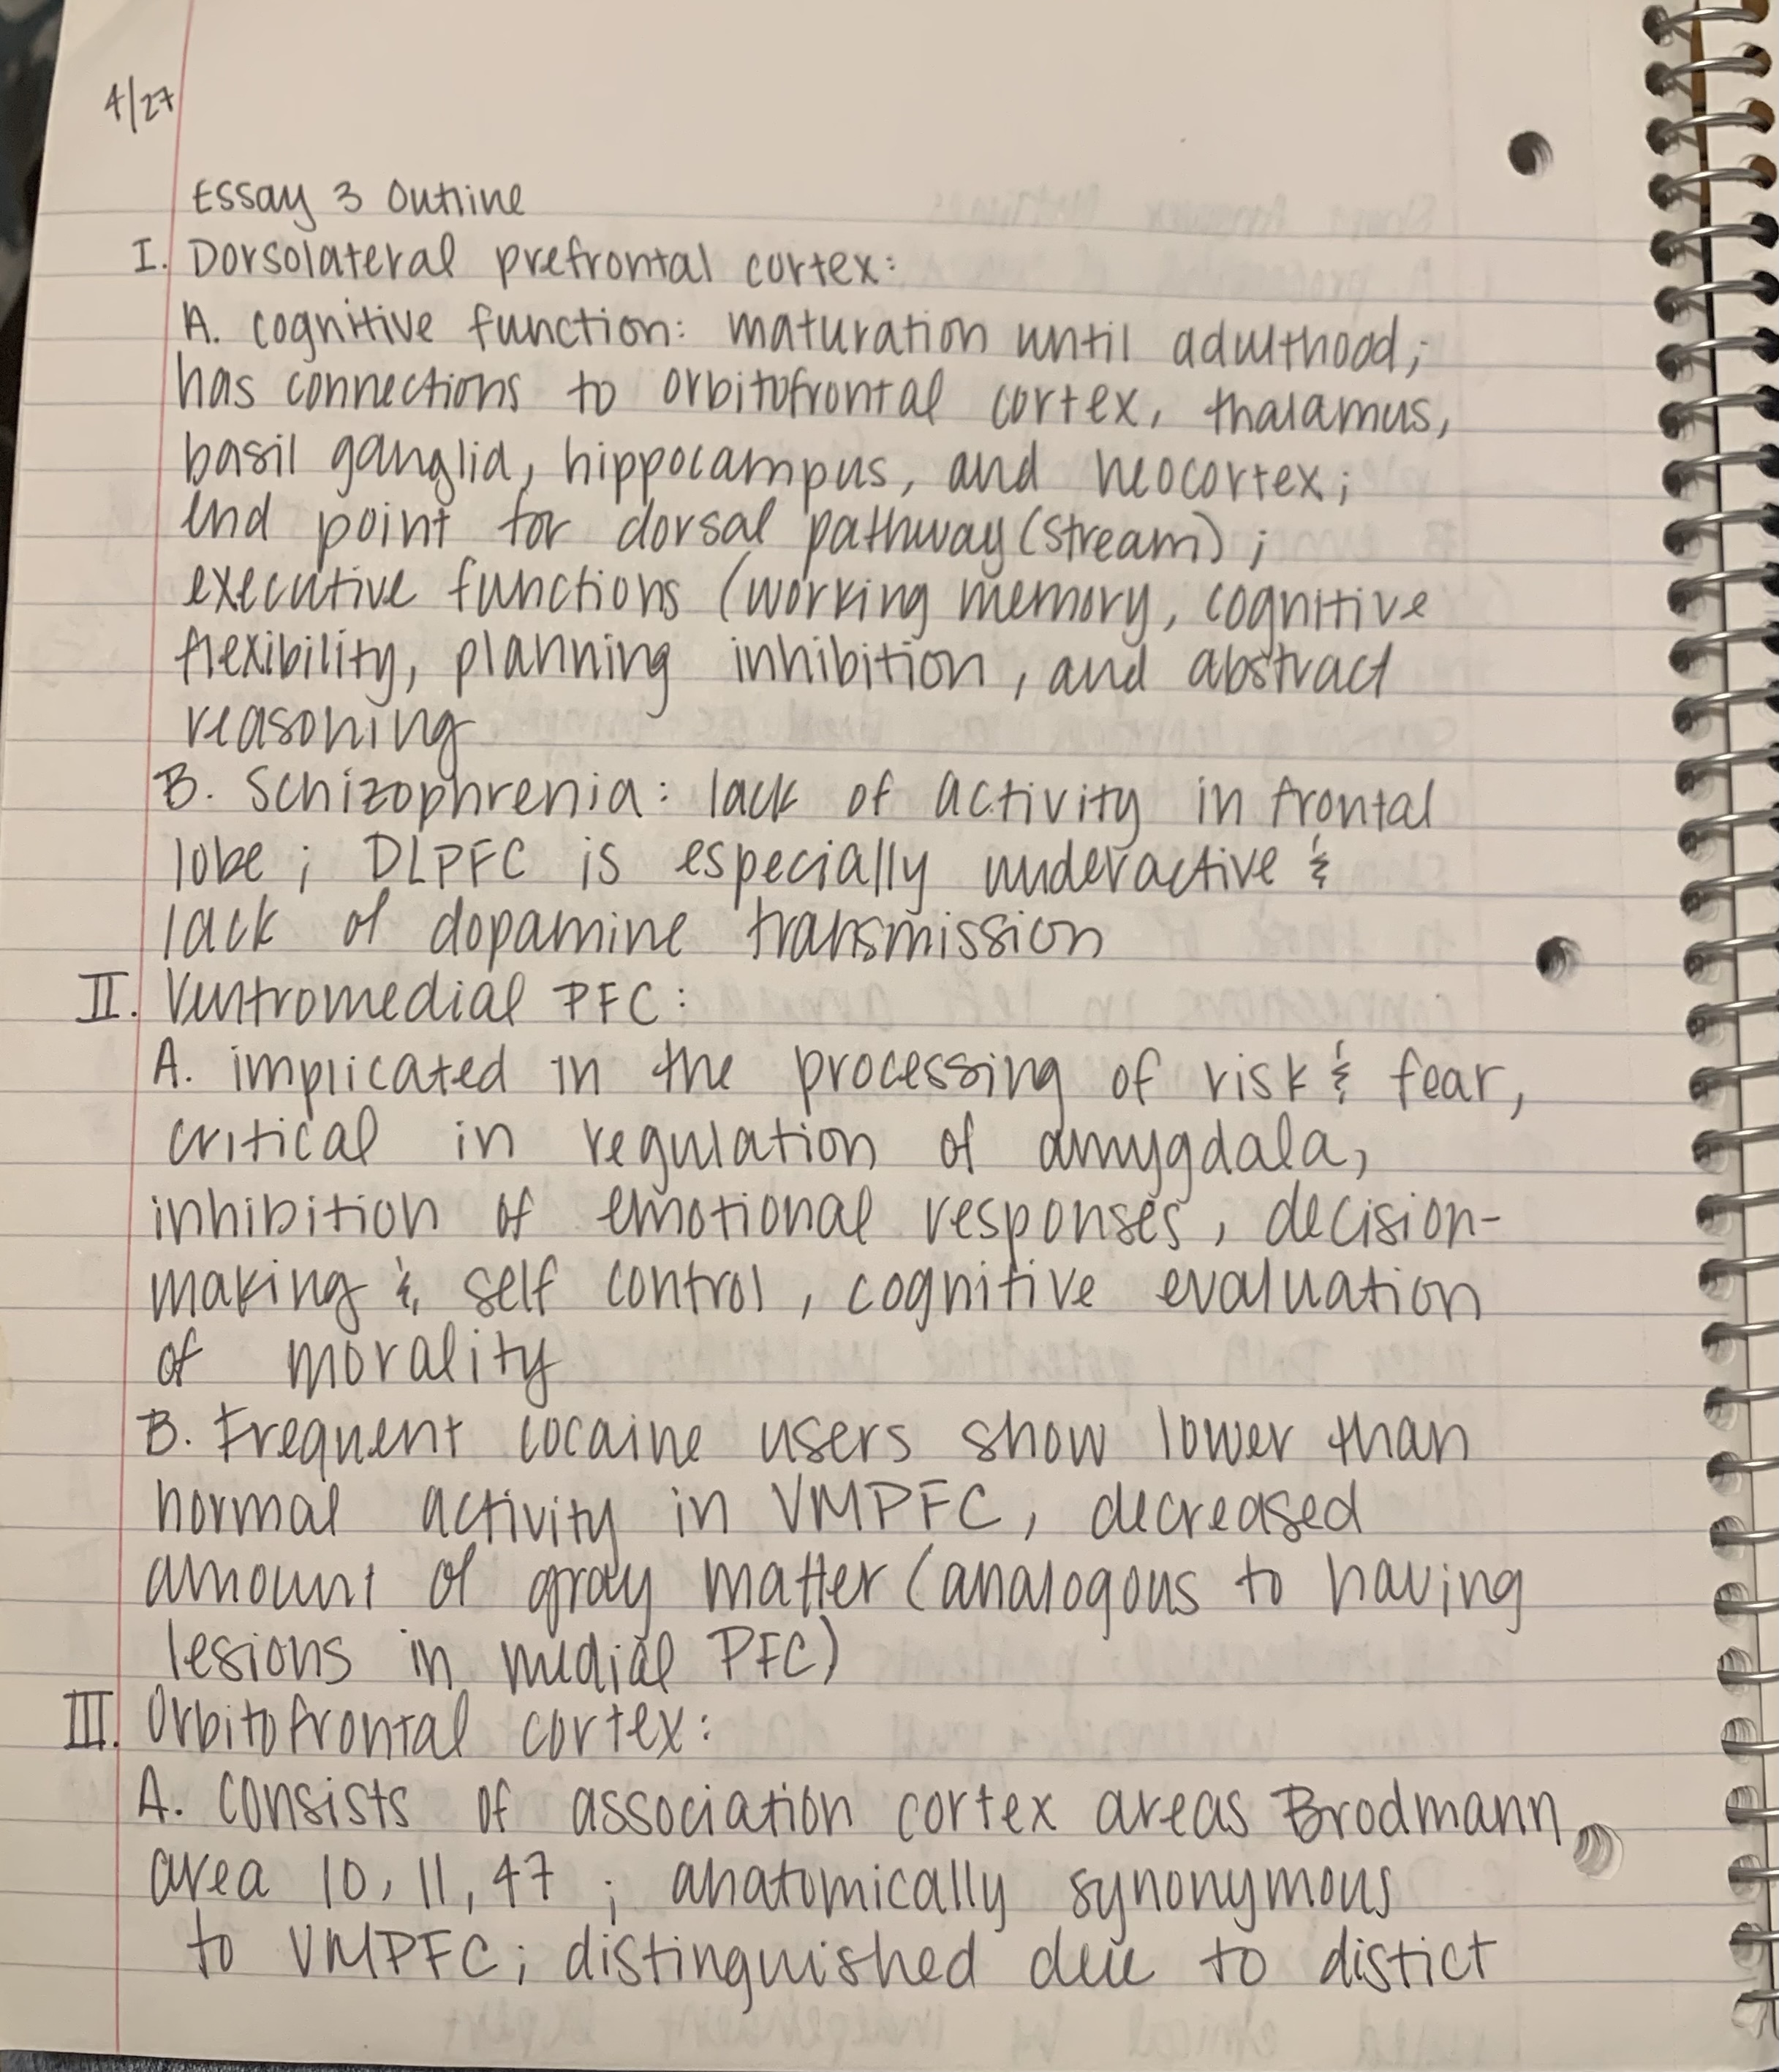 4/27
Essay 3 Outline
I. Dorsolateral prefrontal cortex:
A. cognitive function: maturation until adulthood;
has connections to orbitofrontal cortex, thalamus,
basil ganglia, hippocampus, and neocortex;
end point for dorsal pathway (stream);
executive functions (working memory, cognitive
flexibility, planning inhibition, and abstract
reasoning
B. Schizophrenia: lack of activity in frontal
lobe; DLPFC is especially underactive &
lack of dopamine transmission
II. Ventromedial PFC:
A. implicated in the processing of risk & fear,
critical in regulation of amygdala,
inhibition of emotional responses, decision-
making & self control, cognitive evaluation
of morality
B. Frequent cocaine users show lower than
normal activity in VMPFC, decreased
amount of gray matter (analogous to having
lesions in medial PFC)
III. Orbitofrontal cortex:
A. consists of association cortex areas Brodmann
area 10, 11, 47; anatomically synonymous
to VMPFC; distinguished due to distict